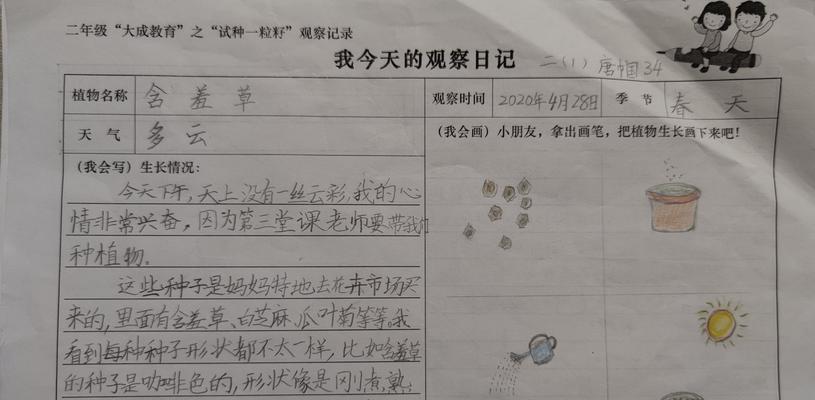 二年级“大成教育”之“试种一粒籽”观察记录
我今天的观察日记
二(1) 唐帼 34
植物名称 含羞草 观察时间 2020年4月28日 季节 春天
天气 多云
(我会画)小朋友,拿出画笔,把植物生长画下来吧!
(我会写)生长情况:
今天下午,天上没有一丝云彩,我的心
情非常兴奋,因为第三堂课老师要带我们
种植物。
这些种子是妈妈特地去花卉市场买
来的,里面有含羞草、白芝麻、瓜叶菊等等。我
看到每种种子形状都不太一样,比如含羞草
的种子是咖啡色的,形状像是刚煮熟